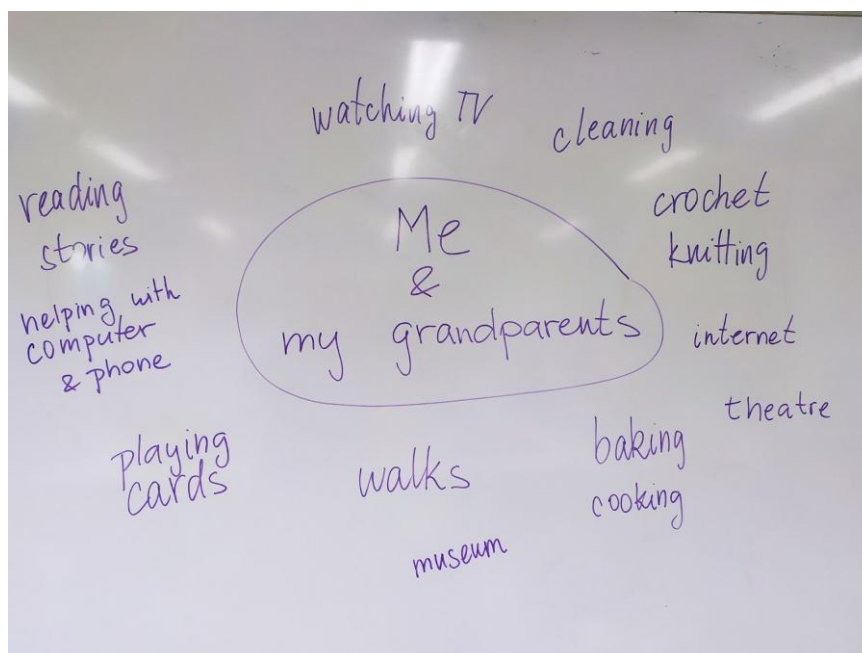 watching TV
cleaning
reading
stories
crochet
knitting
Me
&
my grandparents
helping with
computer
& phone
internet
theatre
playing
cards
walks
baking
cooking
museum